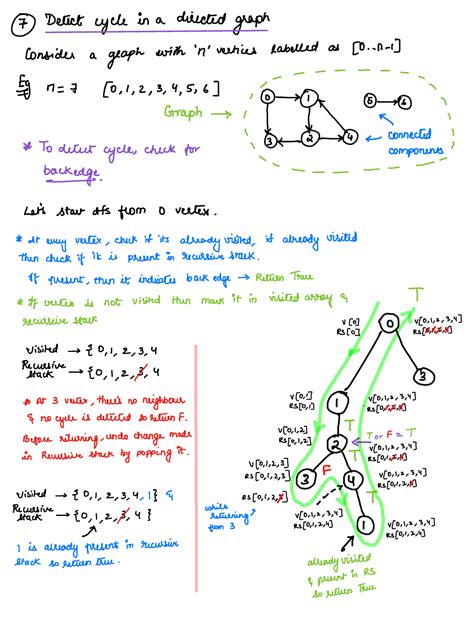 7 Detect cycle in a directed graph
Consider a graph with 'n' vertices labelled as [0..n-1]
Eg n = 7 [0, 1, 2, 3, 4, 5, 6]
Graph →
0 1 5 6
3 2 4
connected
components
* To detect cycle, check for
backedge.
Let's start dfs from 0 vertex.
* At every vertex, check if its already visited, if already visited
then check if it is present in recursive stack.
If present, then it indicates back edge → Return True
* If vertex is not visited then mark it in visited array &
recursive stack
Visited → { 0, 1, 2, 3, 4
Recursive
stack → { 0, 1, 2, 3, 4
* At 3 vertex, there's no neighbour
& no cycle is detected so return F.
Before returning, undo change made
in Recursive stack by popping it.
Visited → { 0, 1, 2, 3, 4, 1 } &
Recursive
stack → { 0, 1, 2, 3, 4 }
1 is already present in recursive
stack so return true.
T
V[0]
RS[0]
0
V[0,1,2,3,4]
3
V[0,1]
RS[0,1]
1
T
V[0,1,2,3,4]
V[0,1,2]
RS[0,1,2]
2
T or F = T
V[0,1,2,3,4]
V[0,1,2,3]
RS[0,1,2,3]
F
T
3
4
V[0,1,2,3,4]
V[0,1,2,3]
RS[0,1,2,3]
T
while
returning
from 3
V[0,1,2,3,4]
RS[0,1,2,4]
1
V[0,1,2,3,4]
RS[0,1,2,4]
already visited
& present in RS
so return True